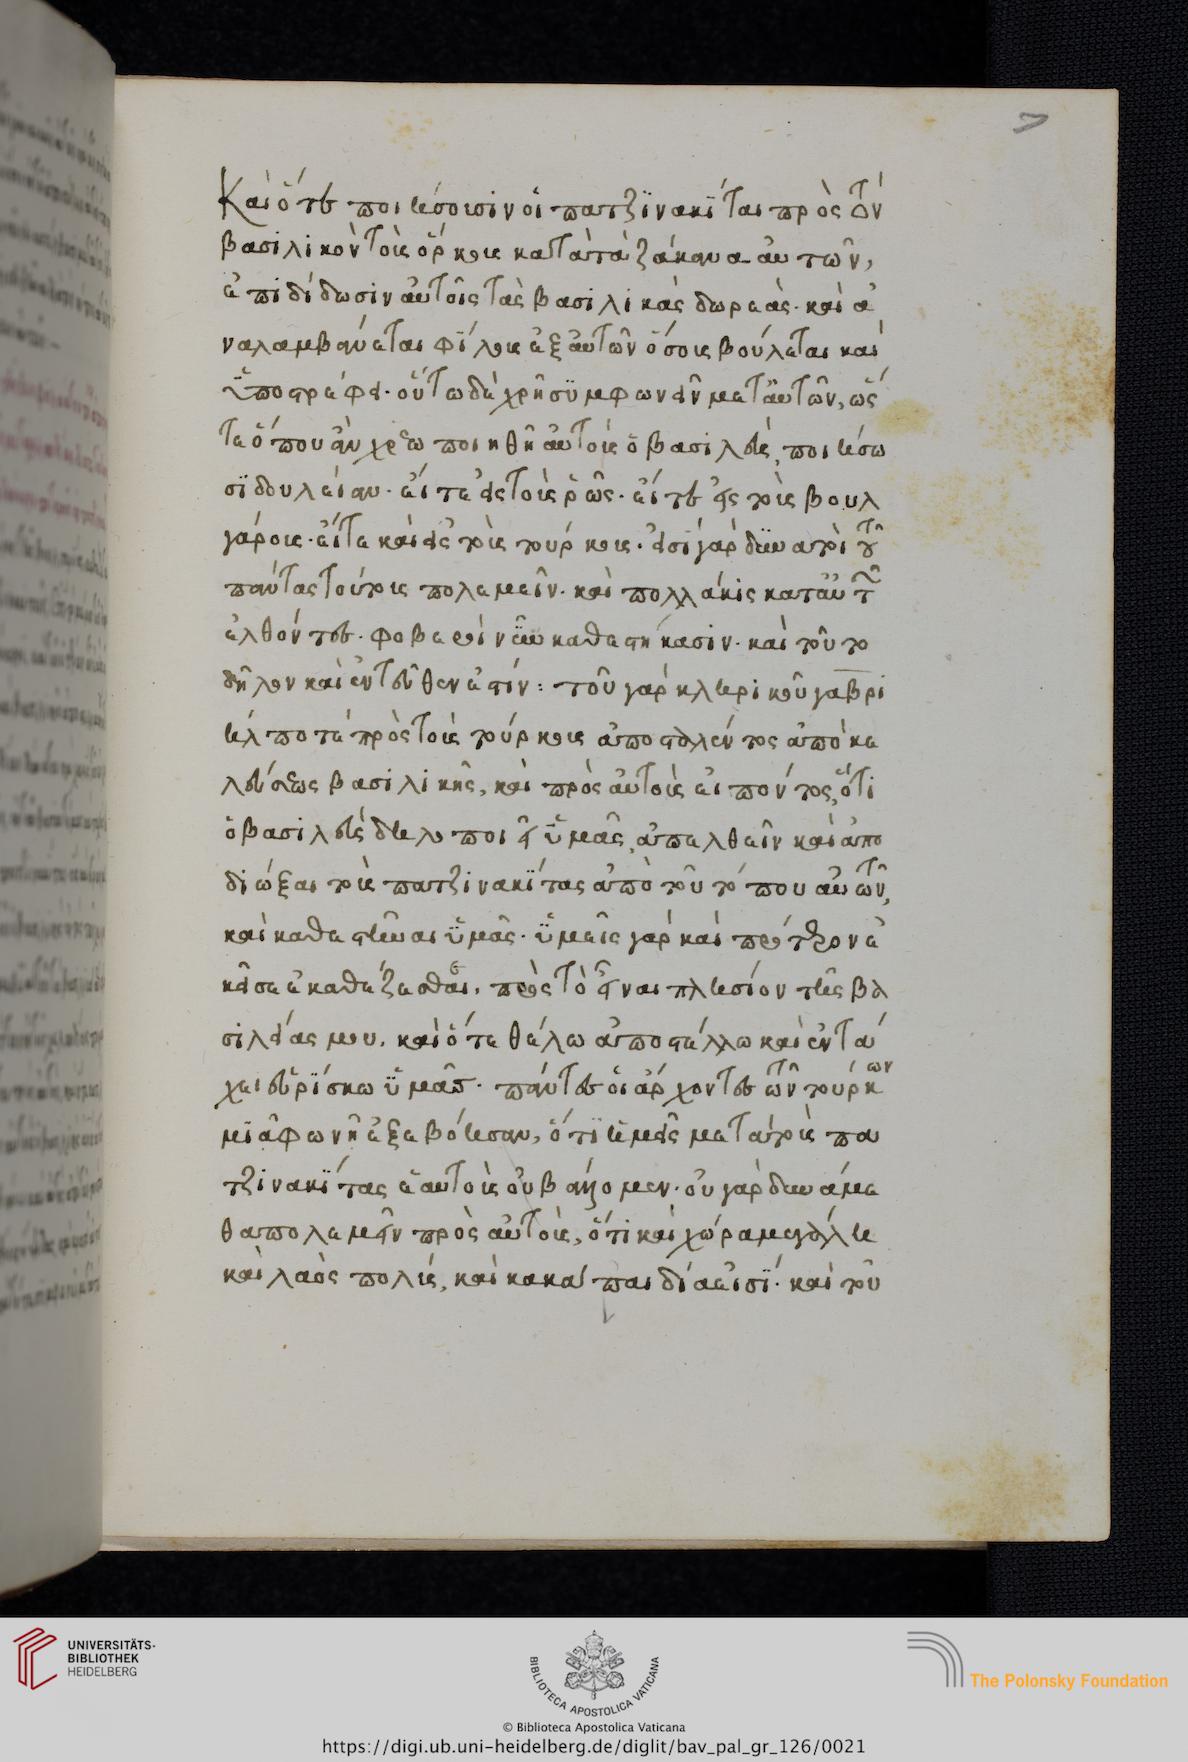 7
Καὶ ὅτε ποιήσουσιν οἱ πατζϊνακῖται πρὸς τὸν
βασιλικὸν τοὺς ὅρκους κατὰ τὰ ζάκανα αὐτῶν,
ἐπιδίδωσιν αὐτοῖς τὰς βασιλικὰς δωρεάς· καὶ ἀ
ναλαμβάνεται φίλους ἐξ αὐτῶν ὅσους βούλεται καὶ
ὑποστρέφει· οὕτω δὲ χρὴ συμφωνεῖν μετ' αὐτῶν, ὥς
τε ὅπου ἂν χρέω ποιηθῇ αὐτοὺς ὁ βασιλεύς, ποιήσω
σϊ δουλείαν· εἴτε εἰς τοὺς ῥῶς· εἴτε εἰς τοὺς βουλ
γάρους· εἴτε καὶ εἰς τοὺς τούρκους· εἰσὶ γὰρ δυνατοὶ τοῦ
πάντας τούτους πολεμεῖν· καὶ πολλάκις κατ' αὐτῶν
ἐλθόντες· φοβεροὶ νῦν καθεστήκασιν· καὶ τοῦτο
δῆλον καὶ ἐντεῦθεν ἐστίν: τοῦ γὰρ κληρικοῦ γαβρι
ήλ ποτὲ πρὸς τοὺς τούρκους ἀποσταλέντος ἀπὸ κε
λεύσεως βασιλικῆς, καὶ πρὸς αὐτοὺς εἰπόντος, ὅτι
ὁ βασιλεὺς δηλοποιεῖ ὑμᾶς, ἀπελθεῖν καὶ ἀπο
διώξαι τοὺς πατζινακίτας ἀπὸ τοῦ τόπου αὐτῶν,
καὶ καθεσθῆναι ὑμᾶς· ὑμεῖς γὰρ καὶ πρότερον ἐ
κεῖσε ἐκαθέζεσθαι, πρὸς τὸ εἶναι πλησίον τῆς βα
σιλείας μου, καὶ ὅτε θέλω ἀποστέλλω καὶ ἐν τά
χει εὑρίσκω ὑμᾶς· πάντες οἱ ἄρχοντες τῶν τούρκων
μϊᾶ φωνῇ ἐξεβόησαν, ὅτι ἡμεῖς μετὰ τοὺς πα
τζινακίτας ἑαυτοὺς οὐ βάνομεν· οὐ γὰρ δυνάμε
θα πολεμεῖν πρὸς αὐτούς, ὅτι καὶ χώρα μεγάλη
καὶ λαὸς πολύς, καὶ κακὰ παιδία εἰσί· καὶ τοῦ
UNIVERSITÄTS-
BIBLIOTHEK
HEIDELBERG
BIBLIOTECA APOSTOLICA VATICANA
The Polonsky Foundation
© Biblioteca Apostolica Vaticana
https://digi.ub.uni-heidelberg.de/diglit/bav_pal_gr_126/0021